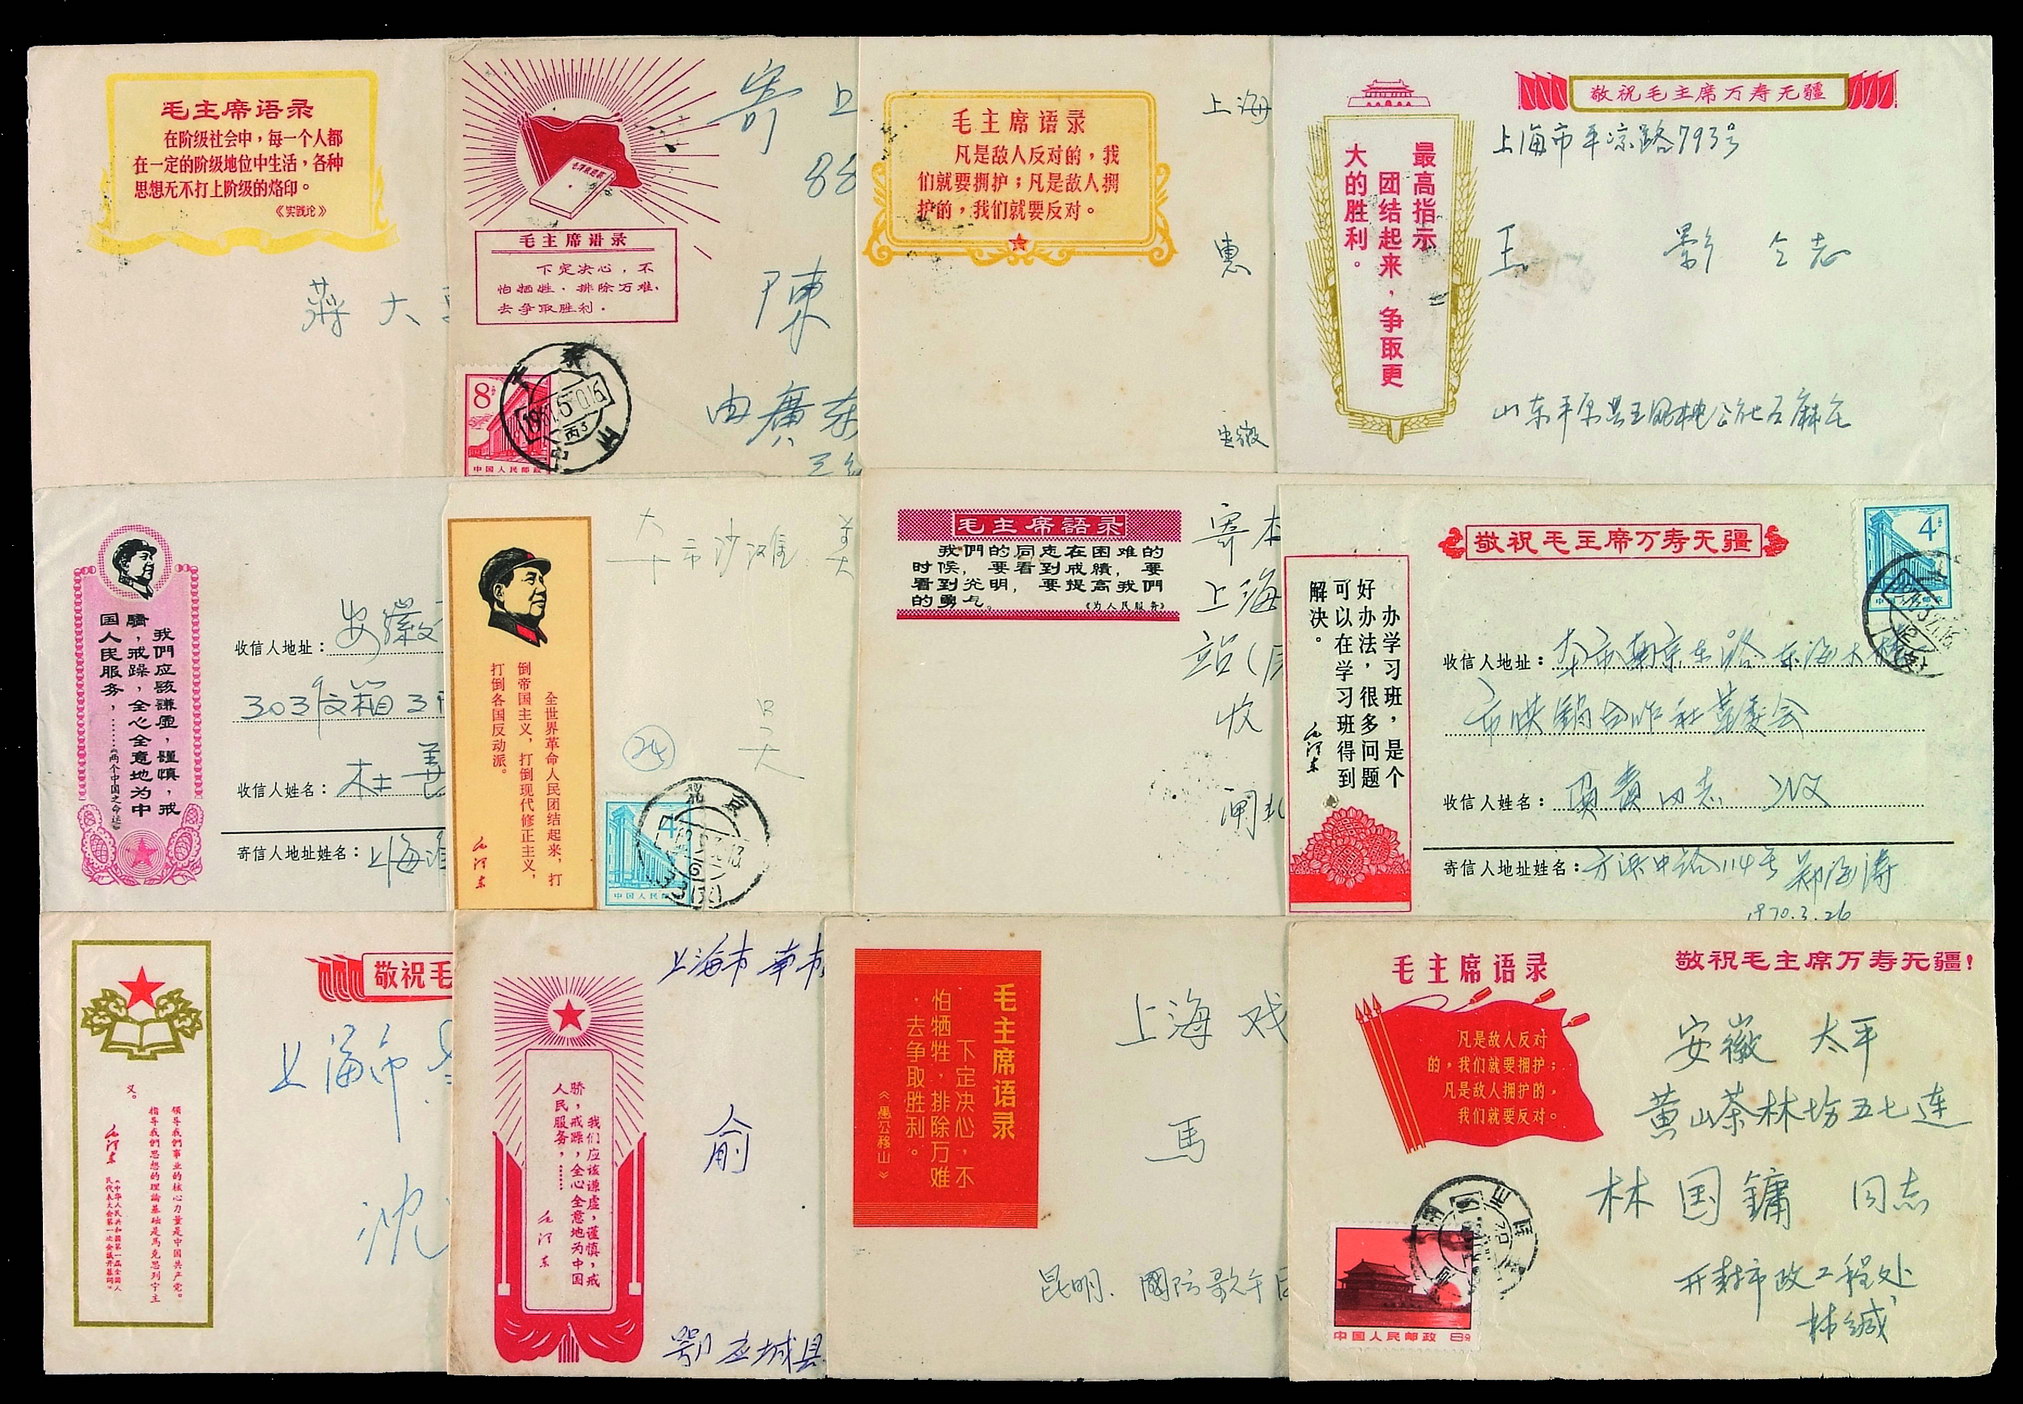 毛主席语录
在阶级社会中，每一个人都
在一定的阶级地位中生活，各种
思想无不打上阶级的烙印。
《实践论》
蒋大
毛主席语录
下定决心，不
怕牺牲，排除万难，
去争取胜利。
寄上
88
陳
由廣东
8
中国人民邮政
毛主席语录
凡是敌人反对的，我
们就要拥护；凡是敌人拥
护的，我们就要反对。
上海
惠
安徽
敬祝毛主席万寿无疆
最高指示
团结起来，争取更
大的胜利。
上海市平凉路793号
王
我們应该谦虚，謹慎，戒
驕，戒躁，全心全意地为中
国人民服务，……
《两个中国之命运》
收信人地址：安徽
303信箱3
收信人姓名：杜
寄信人地址姓名：上海
全世界革命人民团结起来，打
倒帝国主义，打倒现代修正主义，
打倒各国反动派。
毛泽东
本市沙滩
吴
24
4
中国人民
北京
毛主席語录
我們的同志在困难的
时候，要看到成績，要
看到光明，要提高我們
的勇气。
《为人民服务》
寄本
上海
站
收
闸北
敬祝毛主席万寿无疆
办学习班，是个
好办法，很多问题
可以在学习班得到
解决。
毛泽东
4
收信人地址：本市南京东路东海大楼
市供销合作社革委会
收信人姓名：
寄信人地址姓名：方浜中路114号 郑海涛
1970.3.26
敬祝毛
领导我們事业的核心力量是中国共产党。
指导我們思想的理論基础是馬克思列宁主
义。
毛泽东
《中华人民共和国第一届全国人
民代表大会第一次会議开幕詞》
上海市
沈
我们应该谦虚，谨慎，戒
骄，戒躁，全心全意地为中国
人民服务，……
毛泽东
上海市南市
俞
鄂应城县
毛主席语录
下定决心，不
怕牺牲，排除万难
，去争取胜利。
《愚公移山》
上海戏
馬
昆明．國防歌午
毛主席语录
敬祝毛主席万寿无疆！
凡是敌人反对
的，我们就要拥护；
凡是敌人拥护的，
我们就要反对。
安徽 太平
黄山茶林场五七连
林国镛 同志
开封市政工程处
林缄
中国人民邮政 8分